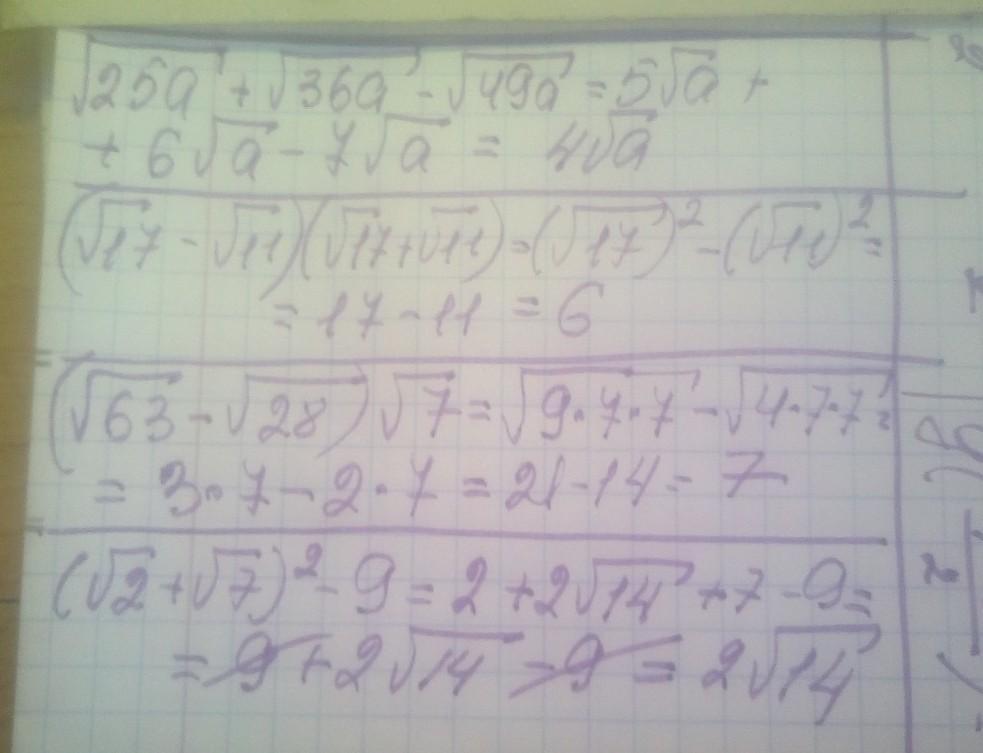 √25a + √36a - √49a = 5√a +
+ 6√a - 7√a = 4√a
(√17 - √11)(√17+√11) = (√17)² - (√11)² =
= 17 - 11 = 6
(√63 - √28) √7 = √9·7·7 - √4·7·7 =
= 3·7 - 2·7 = 21 - 14 = 7
(√2 + √7)² - 9 = 2 + 2√14 + 7 - 9 =
= 9 + 2√14 - 9 = 2√14